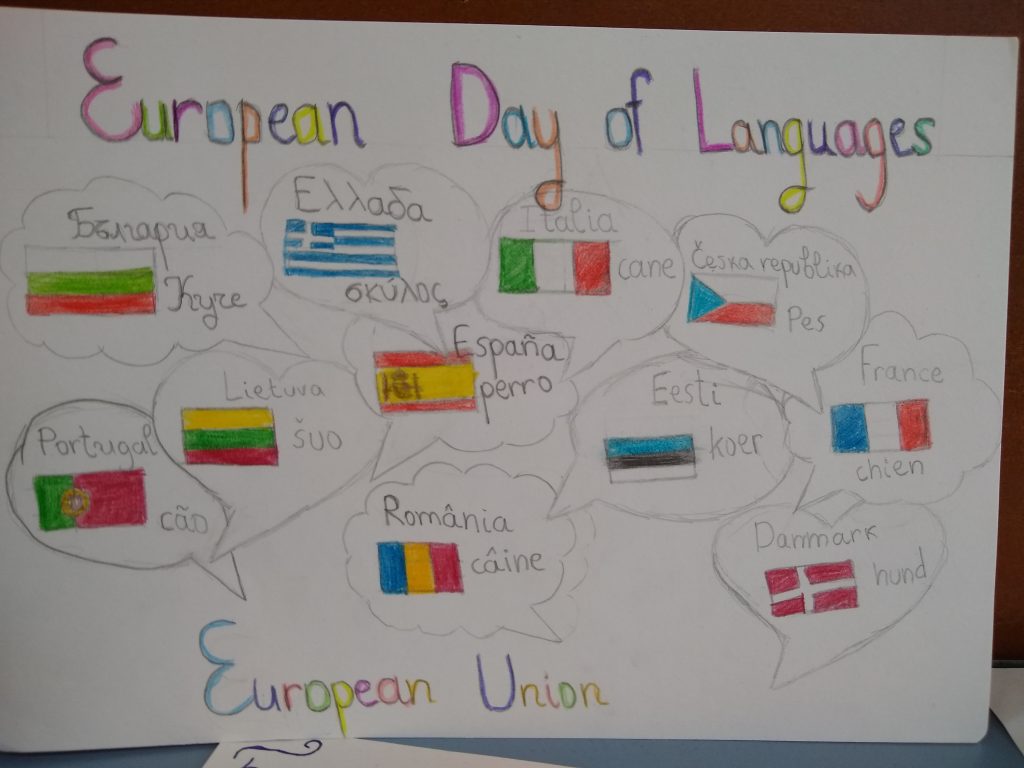 European Day of Languages
България
Куче
Ελλάδα
σκύλος
Italia
cane
Česka republika
Pes
España
perro
Lietuva
šuo
Portugal
cão
Eesti
koer
France
chien
România
câine
Danmark
hund
European Union